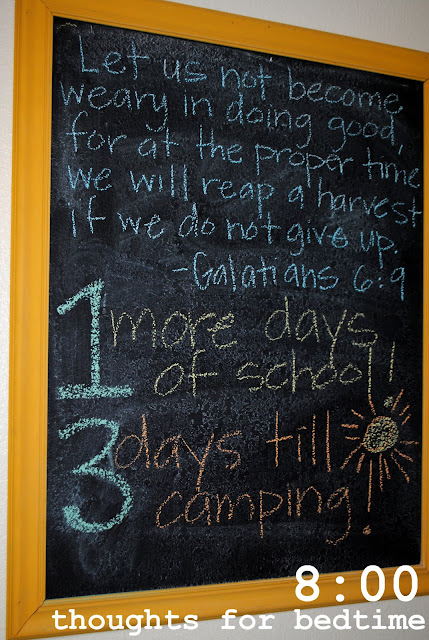 Let us not become
weary in doing good,
for at the proper time
we will reap a harvest
if we do not give up.
-Galatians 6:9
1 more days
of school!
3 days till
camping!
8:00
thoughts for bedtime